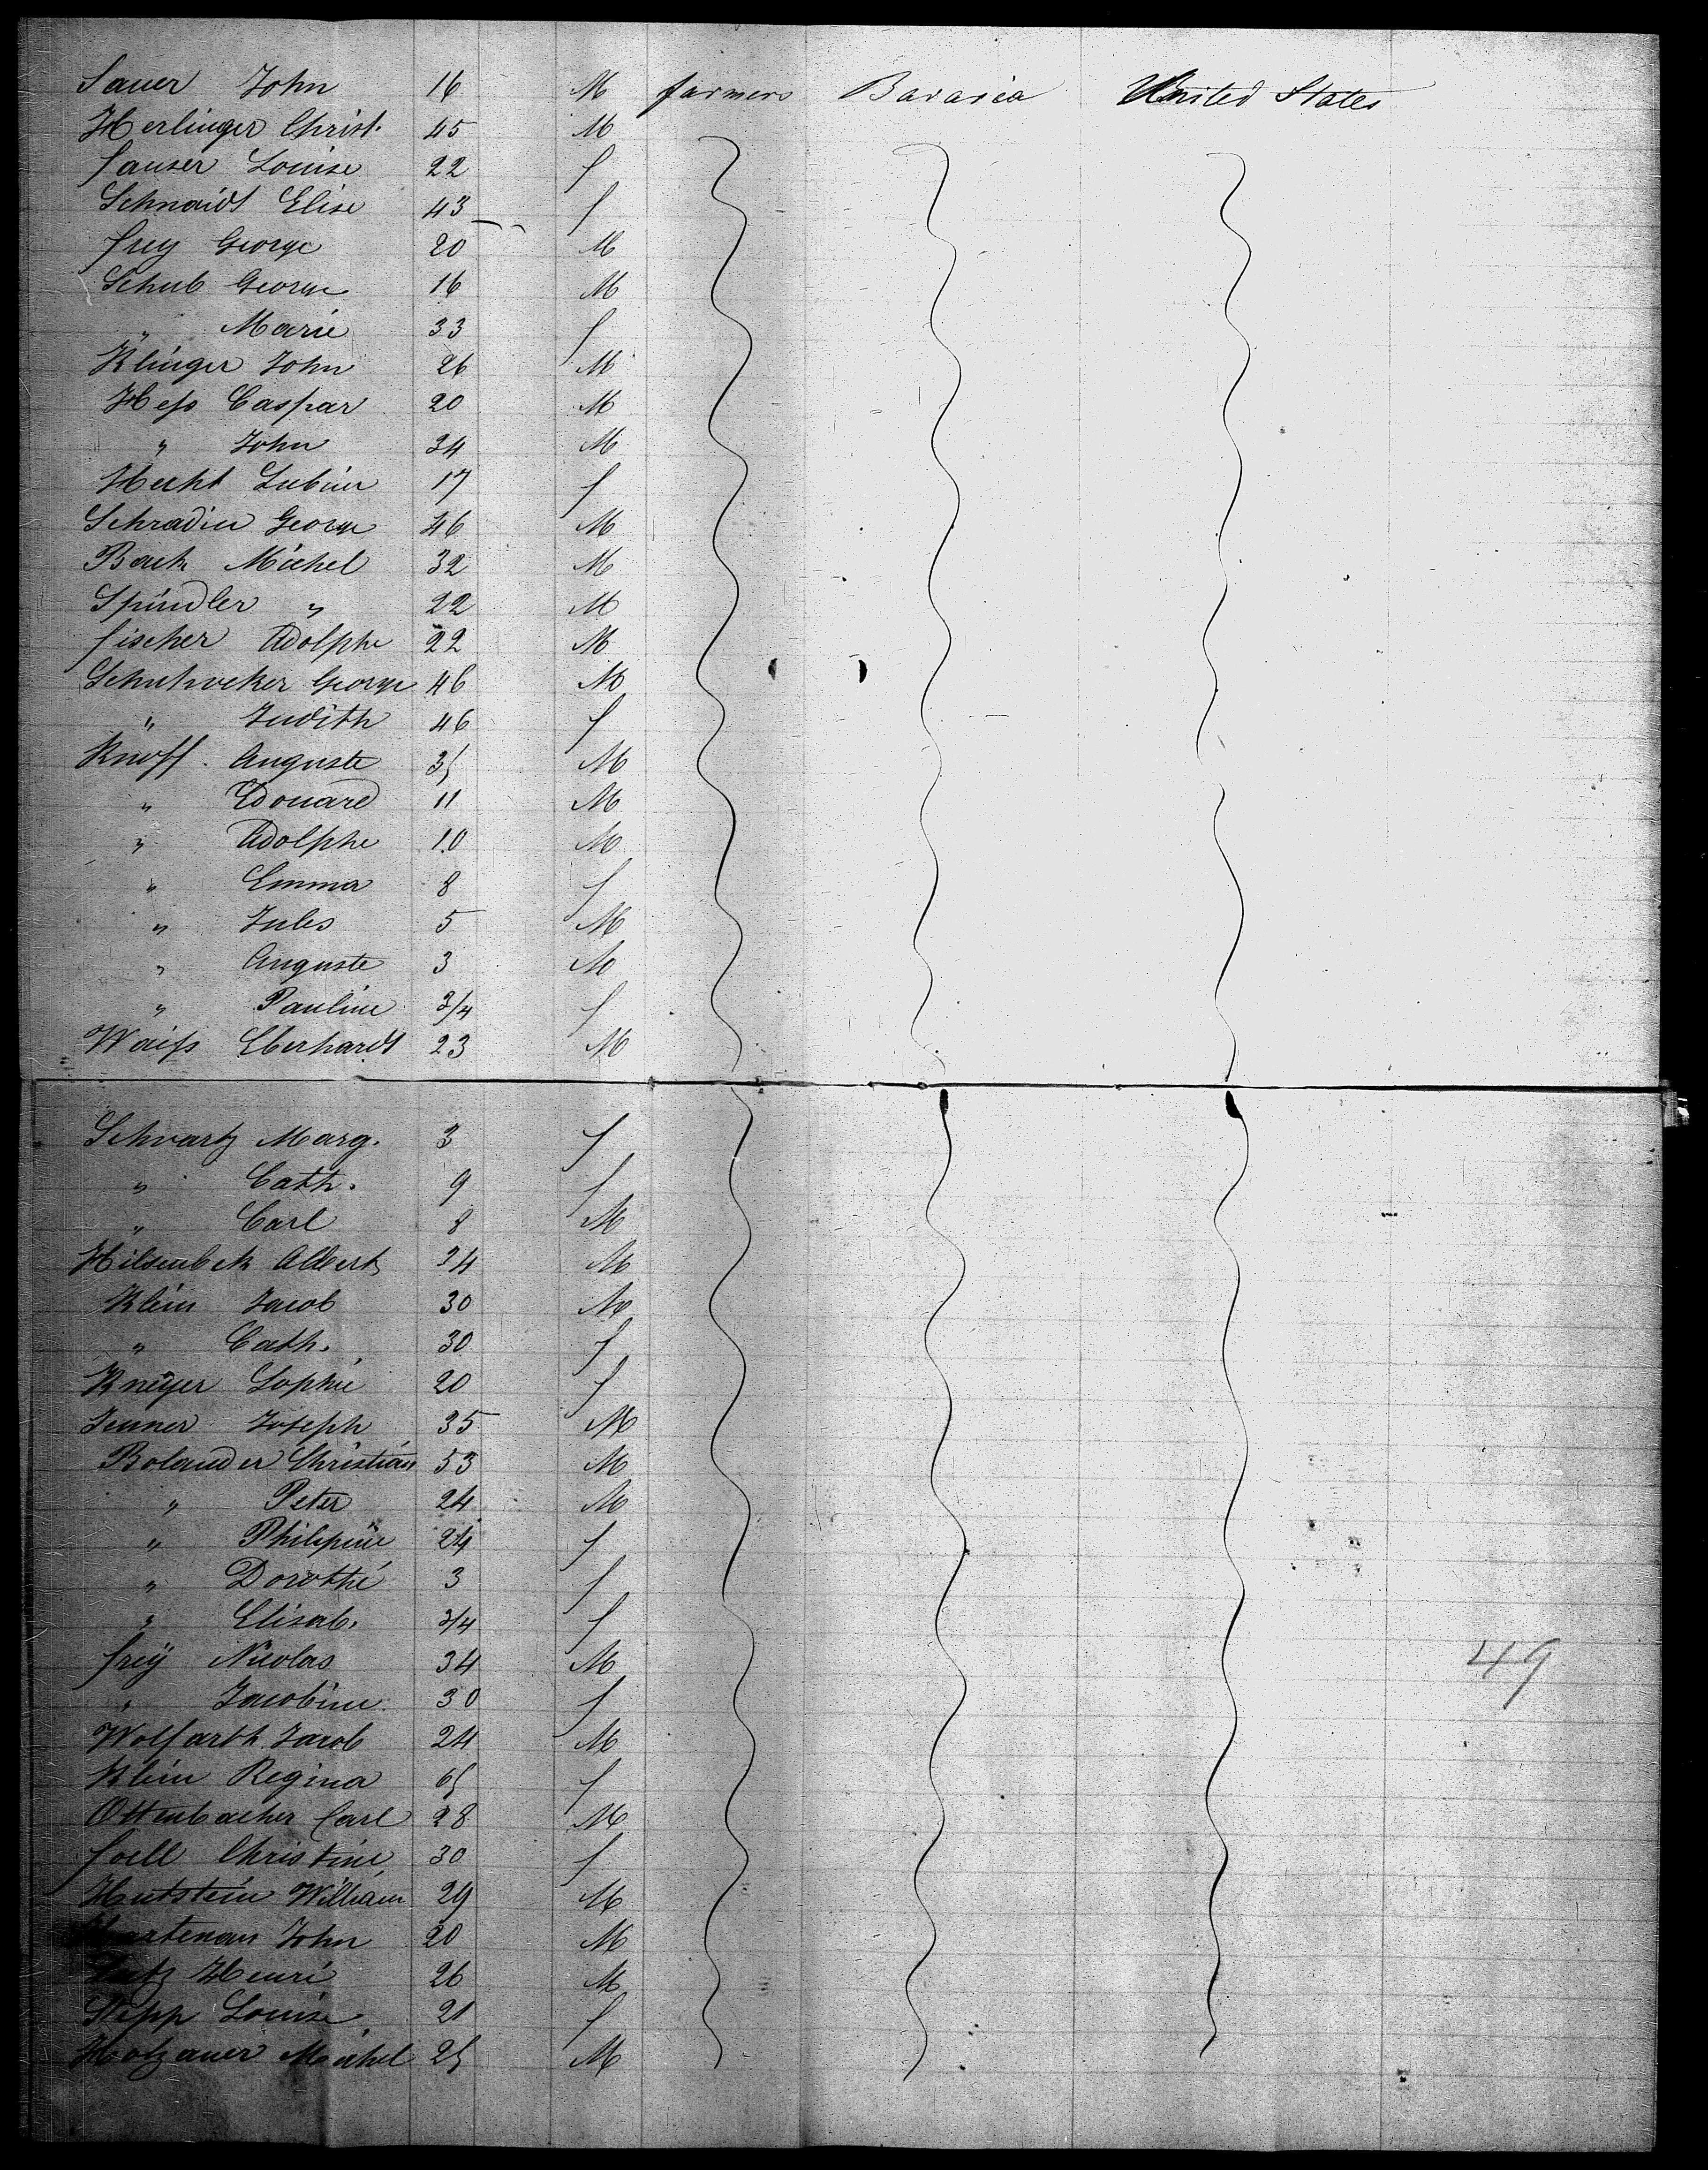 Sauer John 16 M farmers Bavaria United States
Herlinger Christ. 45 M
fauser Louise 22 f
Schnaidt Elise 43 f
frey George 20 M
Schub George 16 M
" Marie 33 f
Klinger John 26 M
Heſs Caspar 20 M
" John 34 M
Hecht 17 f
Schradin George 46 M
Bach Michel 32 M
Spindler " 22 M
fischer Adolphe 22 M
George 46 M
" Judith 46 f
Knoff. Auguste 35 M
" Edouard 11 M
" Adolphe 10 M
" Emma 8 f
" Jules 5 M
" Auguste 3 M
" Pauline 3/4 f
Waiſs Eberhardt 23 M
Schvartz Marg. 3 f
" Cath. 9 f
" Carl 8 M
Hilsenbek Albert 34 M
Klein Jacob 30 M
" Cath. 30 f
Kneÿer Sophie 20 f
Jenner Joseph 35 M
Bolander Christian 53 M
" Peter 24 M
" Philipine 24 f
" Dorothé 3 f
" Elisab. 3/4 f
freÿ Nicolas 34 M
" Jacobine 30 f
Wolfarth Jacob 24 M
Klein Regina 65 f
Ottenbacher Carl 28 M
foell Christine 30 f
Hutstein William 29 M
John 20 M
Henri 26 M
Stepp Louise 21 f
Holzauer Michel 25 M
49